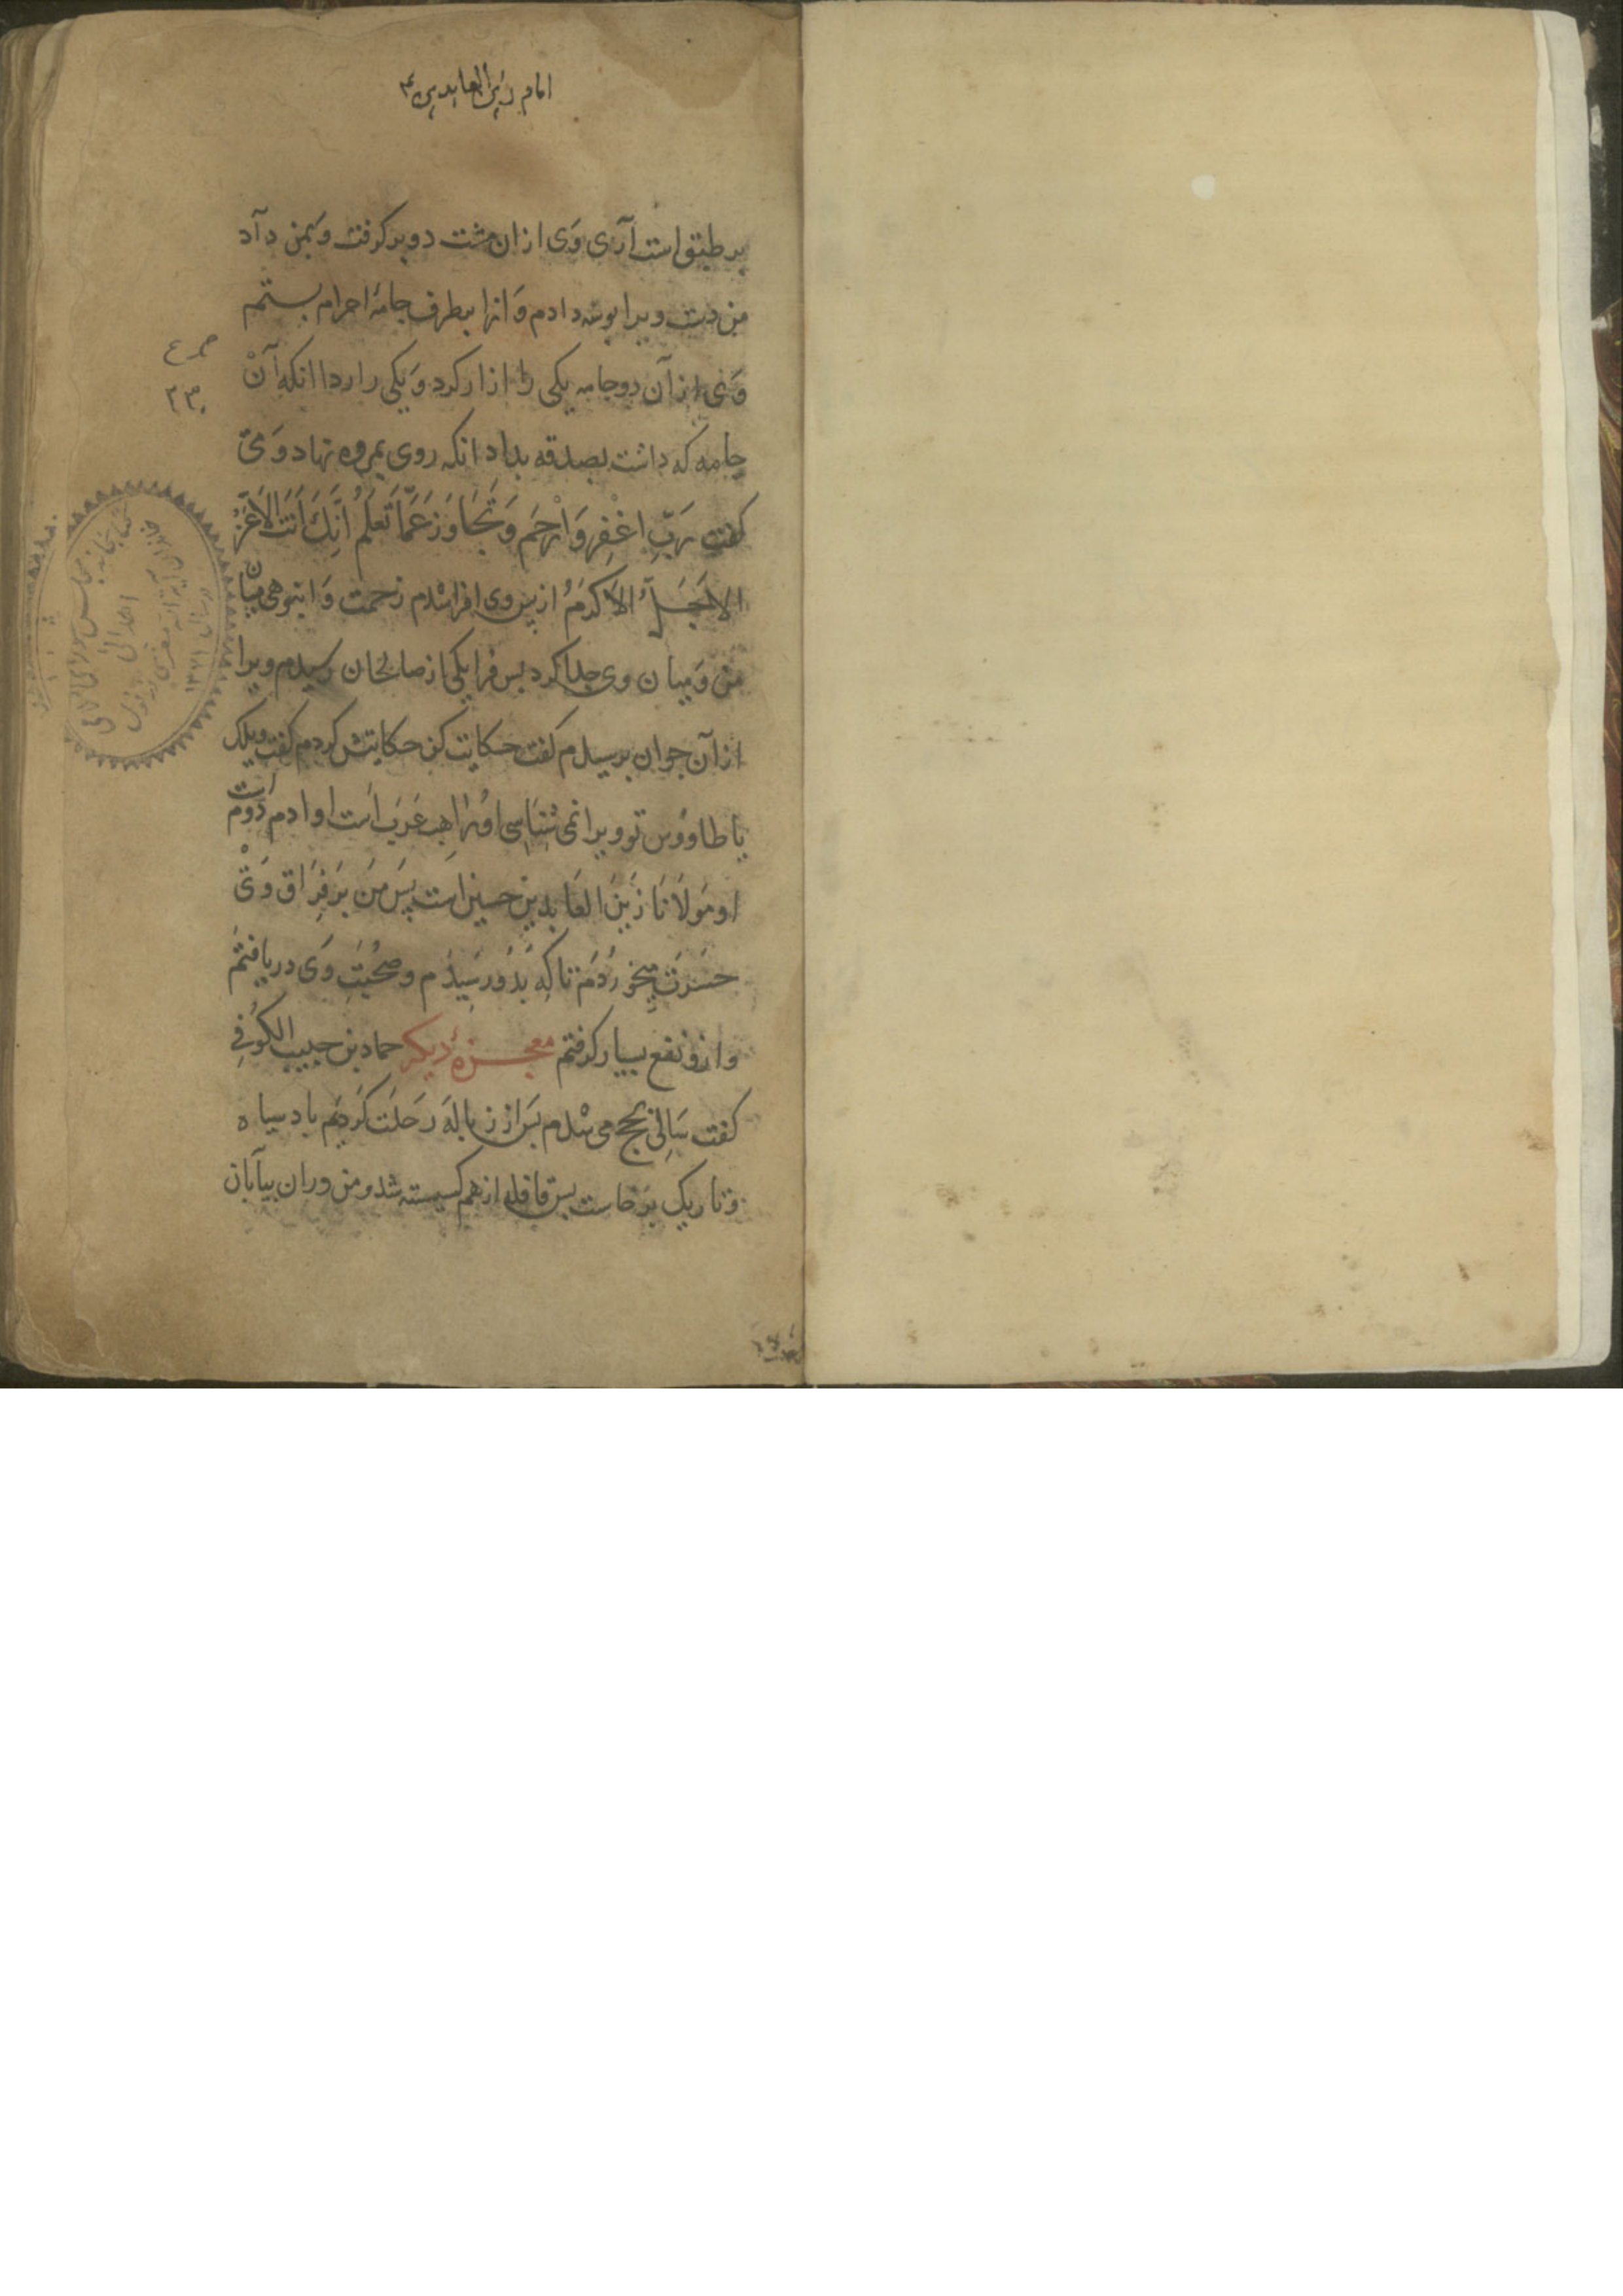 امام زین العابدین ع
بر طبق است آری وی ازان مشت دو بر کرفت و بمن داد
من دست ویرا بوسه دادم و انرا بطرف جامهٔ احرام بستم
وی ازان دو جامه یکی را ازار کرد و یکی را ردا انکه آن
جامه که داشت بصدقه بداد انکه روی بمروه نهاد و می
کفت رَبِّ اغْفِر وَارْحَم وَتَجَاوَز عَمَّا تَعلَمُ اِنَّكَ اَنتَ الاَعَزُّ
الاَجَلُّ الاَکرَمُ از پس وی فراشدم زحمت و انبوهی میان
من و میان وی جدا کرد بس فرا یکی از صالحان رسیدم ویرا
از آن جوان برسیدم کفت حکایت کن حکایتش کردم کفت ویلک
یا طاووس تو ویرا نمی شناسی او راهب عرب است او ادم دوم است
او مولانا زین العابدین حسین است پس من بر فراق وی
حسرت میخوردم تا که بدو رسیدم و صحبت وی دریافتم
وازو نفع بسیار کرفتم معجزهٔ دیکر حماد بن حبیب الکوفی
کفت سالی بحج می شدم بس از زباله رحلت کردیم باد سیاه
و تاریک برخاست بس قافله از هم کسیسته شد و من دران بیابان
کتابخانه مجلس شورای ملی
اهدائی
۱۳۲۱